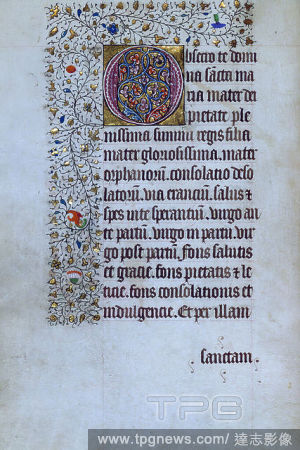 Obsecro te domi
na sācta ma
ria mater dei
pietate ple
nissima summi regis filia
mater gloriosissima. mater
orphanorū. consolatio deso
latorū. via erranciū. salus ⁊
spes in te sperantiū. virgo an
te partū. virgo in partu. vir
go post partū. Fons salutis
et gracie. fons pietatis ⁊ le
ticie. fons consolationis et
indulgencie. Et per illam
sanctam
TPG
www.tpgnews.com/影像/達志影像